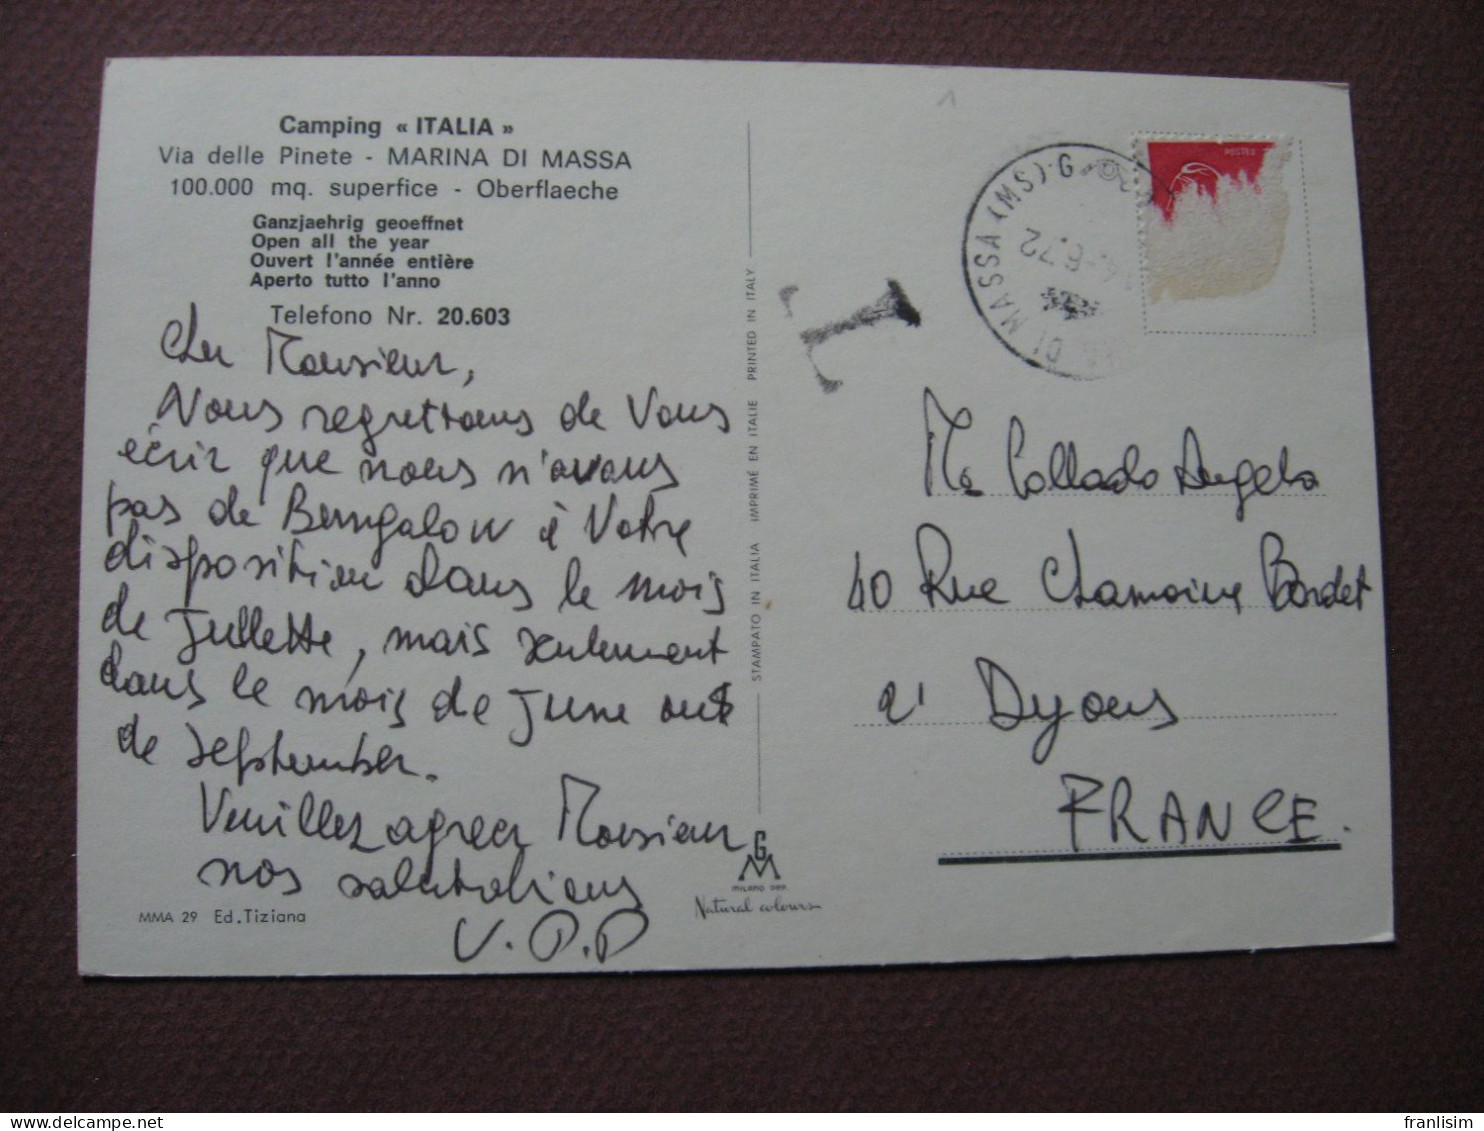 Camping « ITALIA »
Via delle Pinete - MARINA DI MASSA
100.000 mq. superfice - Oberflaeche
Ganzjaehrig geoeffnet
Open all the year
Ouvert l'année entière
Aperto tutto l'anno
Telefono Nr. 20.603
Cher Monsieur,
Nous regretrons de Vous
écrir que nous n'avons
pas de Bemgalow à Votre
disposition dans le mois
de Jullette, mais seulement
dans le mois de June out
de september.
Veuillez agreer Monsieur
nos salutations
V.P.P
MMA 29 Ed. Tiziana
STAMPATO IN ITALIA IMPRIME EN ITALIE PRINTED IN ITALY
G
M
MILANO DEP.
Natural colours
T
DI MASSA (MS)·G
6.72
POSTES
Mr Collado Angelo
40 Rue Chamoine Bordet
a' Dyons
FRANCE.
franlisim